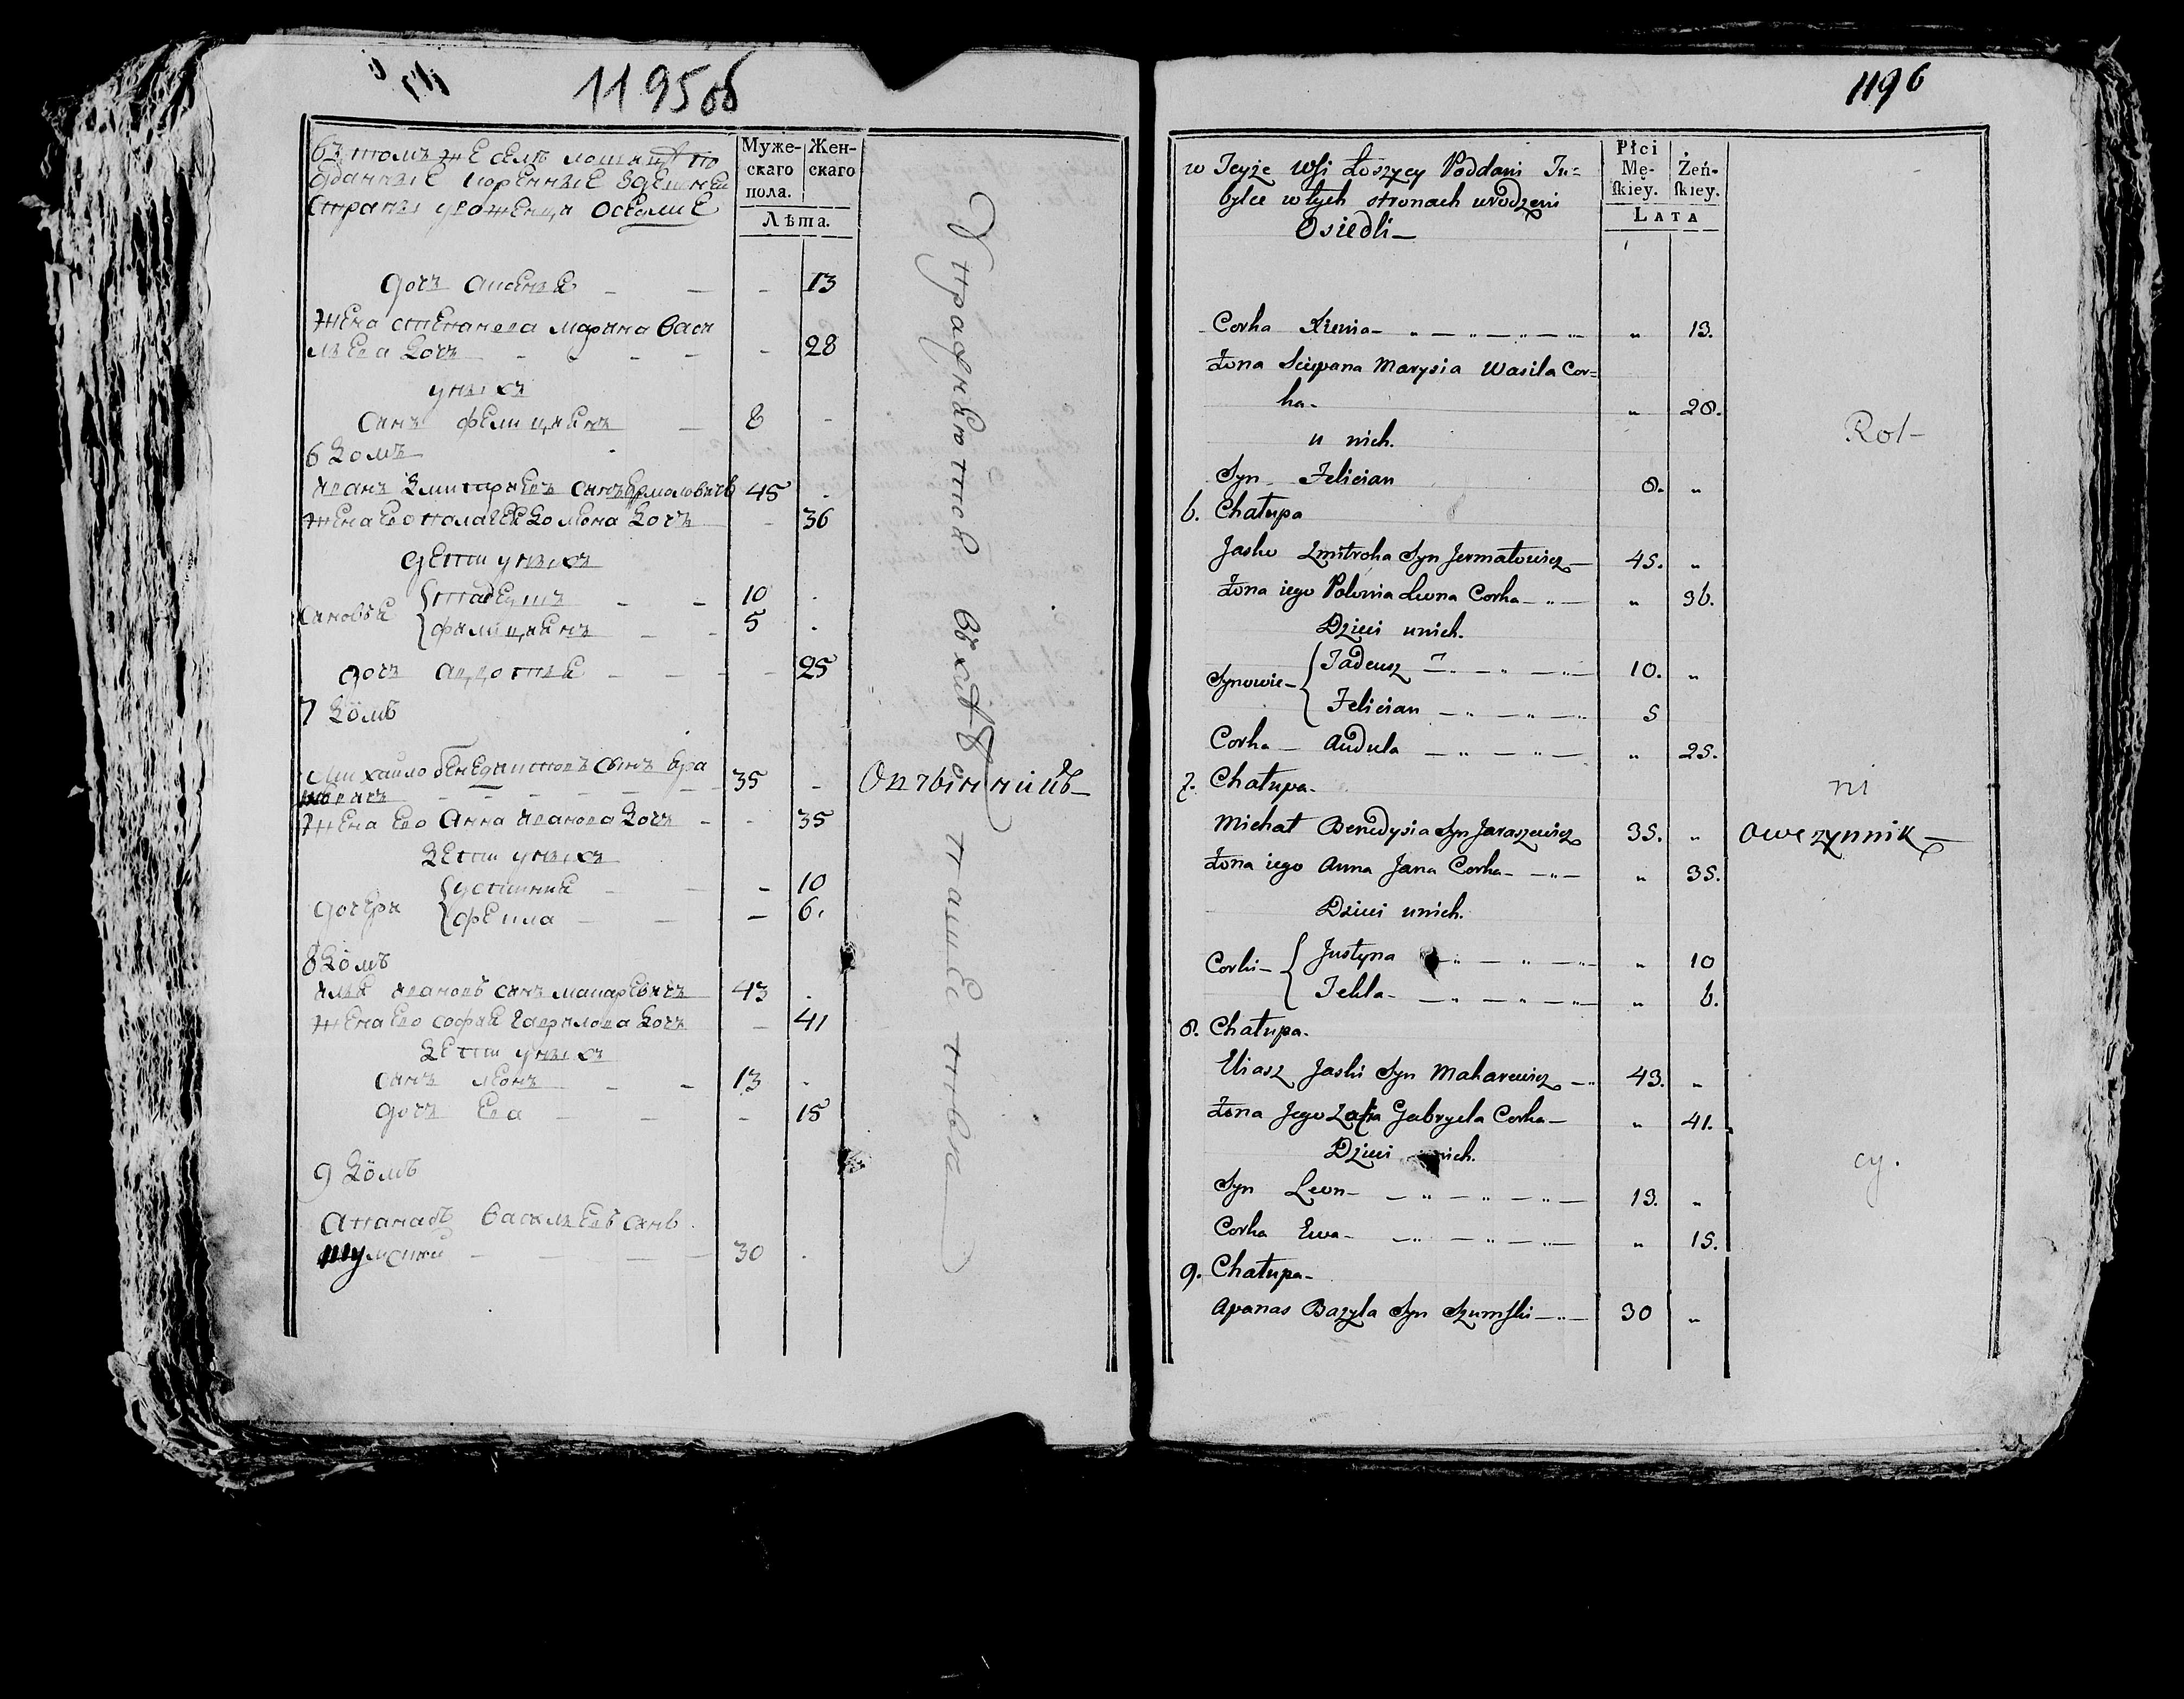 1195об
въ томъ же селѣ лошицѣ по
данные коренные здешней
страны уроженца оселые
Муже-
скаго
пола.
Жен-
скаго
Лѣта.
дочь 13
Жена степанова марина васи
льева дочь 28
у ныхъ
сынъ фелициянъ 8
6 домъ
иванъ змитриевъ сынъ ермоловичъ 45
жена ево полонея леона дочъ 36
дети у ныхъ
сыновья тадеушъ 10
фелициянъ 5
дочь авдотья 25
7 домъ
Михайло бенедиктовъ сынъ яра
шевичъ 35
Жена ево Анна иванова дочь 35
дети у ныхъ
дочери устиния 10
фекла 6.
8 домъ
илья ивановъ сынъ макаревичъ 43
жена ево софия гаврилова дочь 41
дети у ныхъ
сынъ леонъ 13
дочь ева 15
9 домъ
Апанасъ васильевъ сынъ
шумский 30
Упражняютца въ хлѣбо пашестве
Овчынникъ
1196
w Teyże Wsi Łoszycy Poddani Tu=
bylce w tych stronach urodzeni
Osiedli
Płci
Mę-
skiey.
Żeń-
skiey.
LATA
Corka Xienia „ 13.
Żona Sciepana Marysia Wasila Cor=
ka „ 28.
u nich.
Syn Felician 8. „
6. Chałupa
Jasko Zmitroka Syn Jermałowicz 45. „
Żona iego Polonia Leona Corka „ 36.
Dzieci u nich.
Synowie Tadeusz 10. „
Felician 5
Corka Audula „ 25.
7. Chałupa
Michał Benedysia Syn Jaraszewicz 35. „ Owczynnik
Żona iego Anna Jana Corka „ 35.
Dzieci u nich.
Corki Justyna „ 10
Tekla „ 6.
8. Chałupa
Eliasz Jaski Syn Makarewicz 43. „
Żona Jego Zofia Gabryela Corka „ 41.
Dzieci u nich.
Syn Leon 13. „
Corka Ewa „ 15.
9. Chałupa
Apanas Bazyla Syn Szumski 30 „
Rol-
ni
cy.